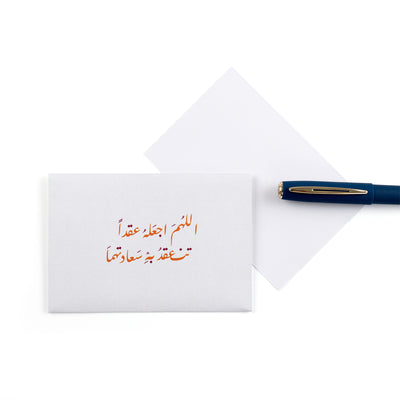 اللهُمَ اجعَلهُ عقداً
تنعقدُ بهِ سَعادتهما